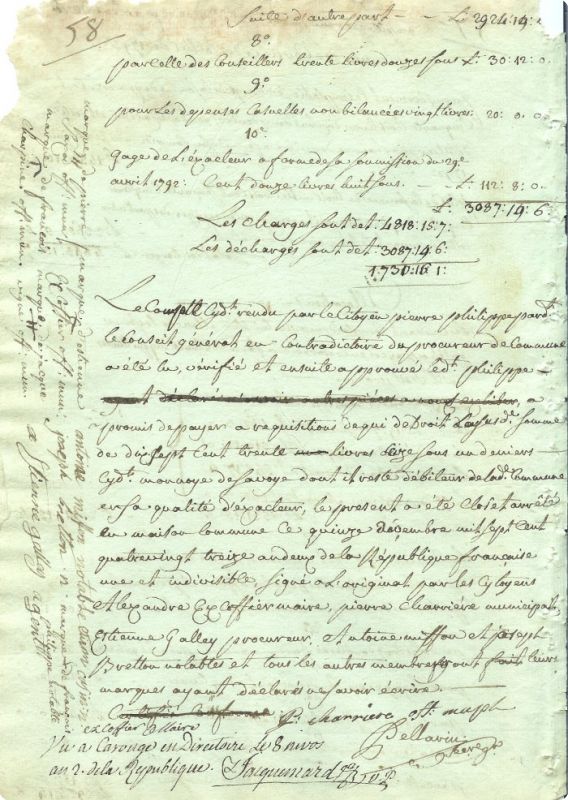 58
Suite d'autre part — £ 2924: 14:
8o
par Colle des Conseillers trente livres douze sous £: 30: 12: 0.
9o
pour Les depenses Casuelles non bilancées vingt livres: 20: 0: 0.
10o
Gage de L'éxacteur a forme de sa soumission du 29e
avril 1792: Cent douze livres huit sous. — £: 112: 8: 0.
£: 3087: 14: 6:
Les charges sont de £: 4818: 15: 7:
Les décharges sont de £: 3087: 14: 6:
1730: 16: 1:
Le Compte cy dt. rendu par le Citoyen pierre philippe pard.
le Conseil général en Contradictoire du procureur de Commune
a été lu, vérifié et ensuite approuvé led. philippe
a
promis de payer a requisitions de qui de Droit La susd. somme
de dix sept Cent trente livres seize sous un deniers
Cy dt. monnoye de Savoye dont il reste débiteur de lad. Commune
en sa qualité d'éxacteur, le présent a été Clos et arrêtté
En maison commune Ce quinze Novembre mil sept Cent
quatrevingt treize an deux de la République francaise
une et indivisible, Signé a L'original par les Cytoyens
Alexandre Excoffier maire, pierre Charriere municipal,
Estienne Galley procureur, et antoine misson et joseph
Bretton notables et tous les autres membres ont fait leurs
marques ayant déclarés ne savoir écrire.
P. charriere off. mupl.
excoffier Maire
Pellarin
Vu a Carouge en directoire le 8 nivos
an 2. de la République. Jacquemard
marque de pierre
marque d'estienne
antoine misson notable
off. mun.
Excoffier off. mun.
joseph bretton n.
marque de francois
marque de jacque
Chappuis off. mun.
Etienne galley agent
philippe notable